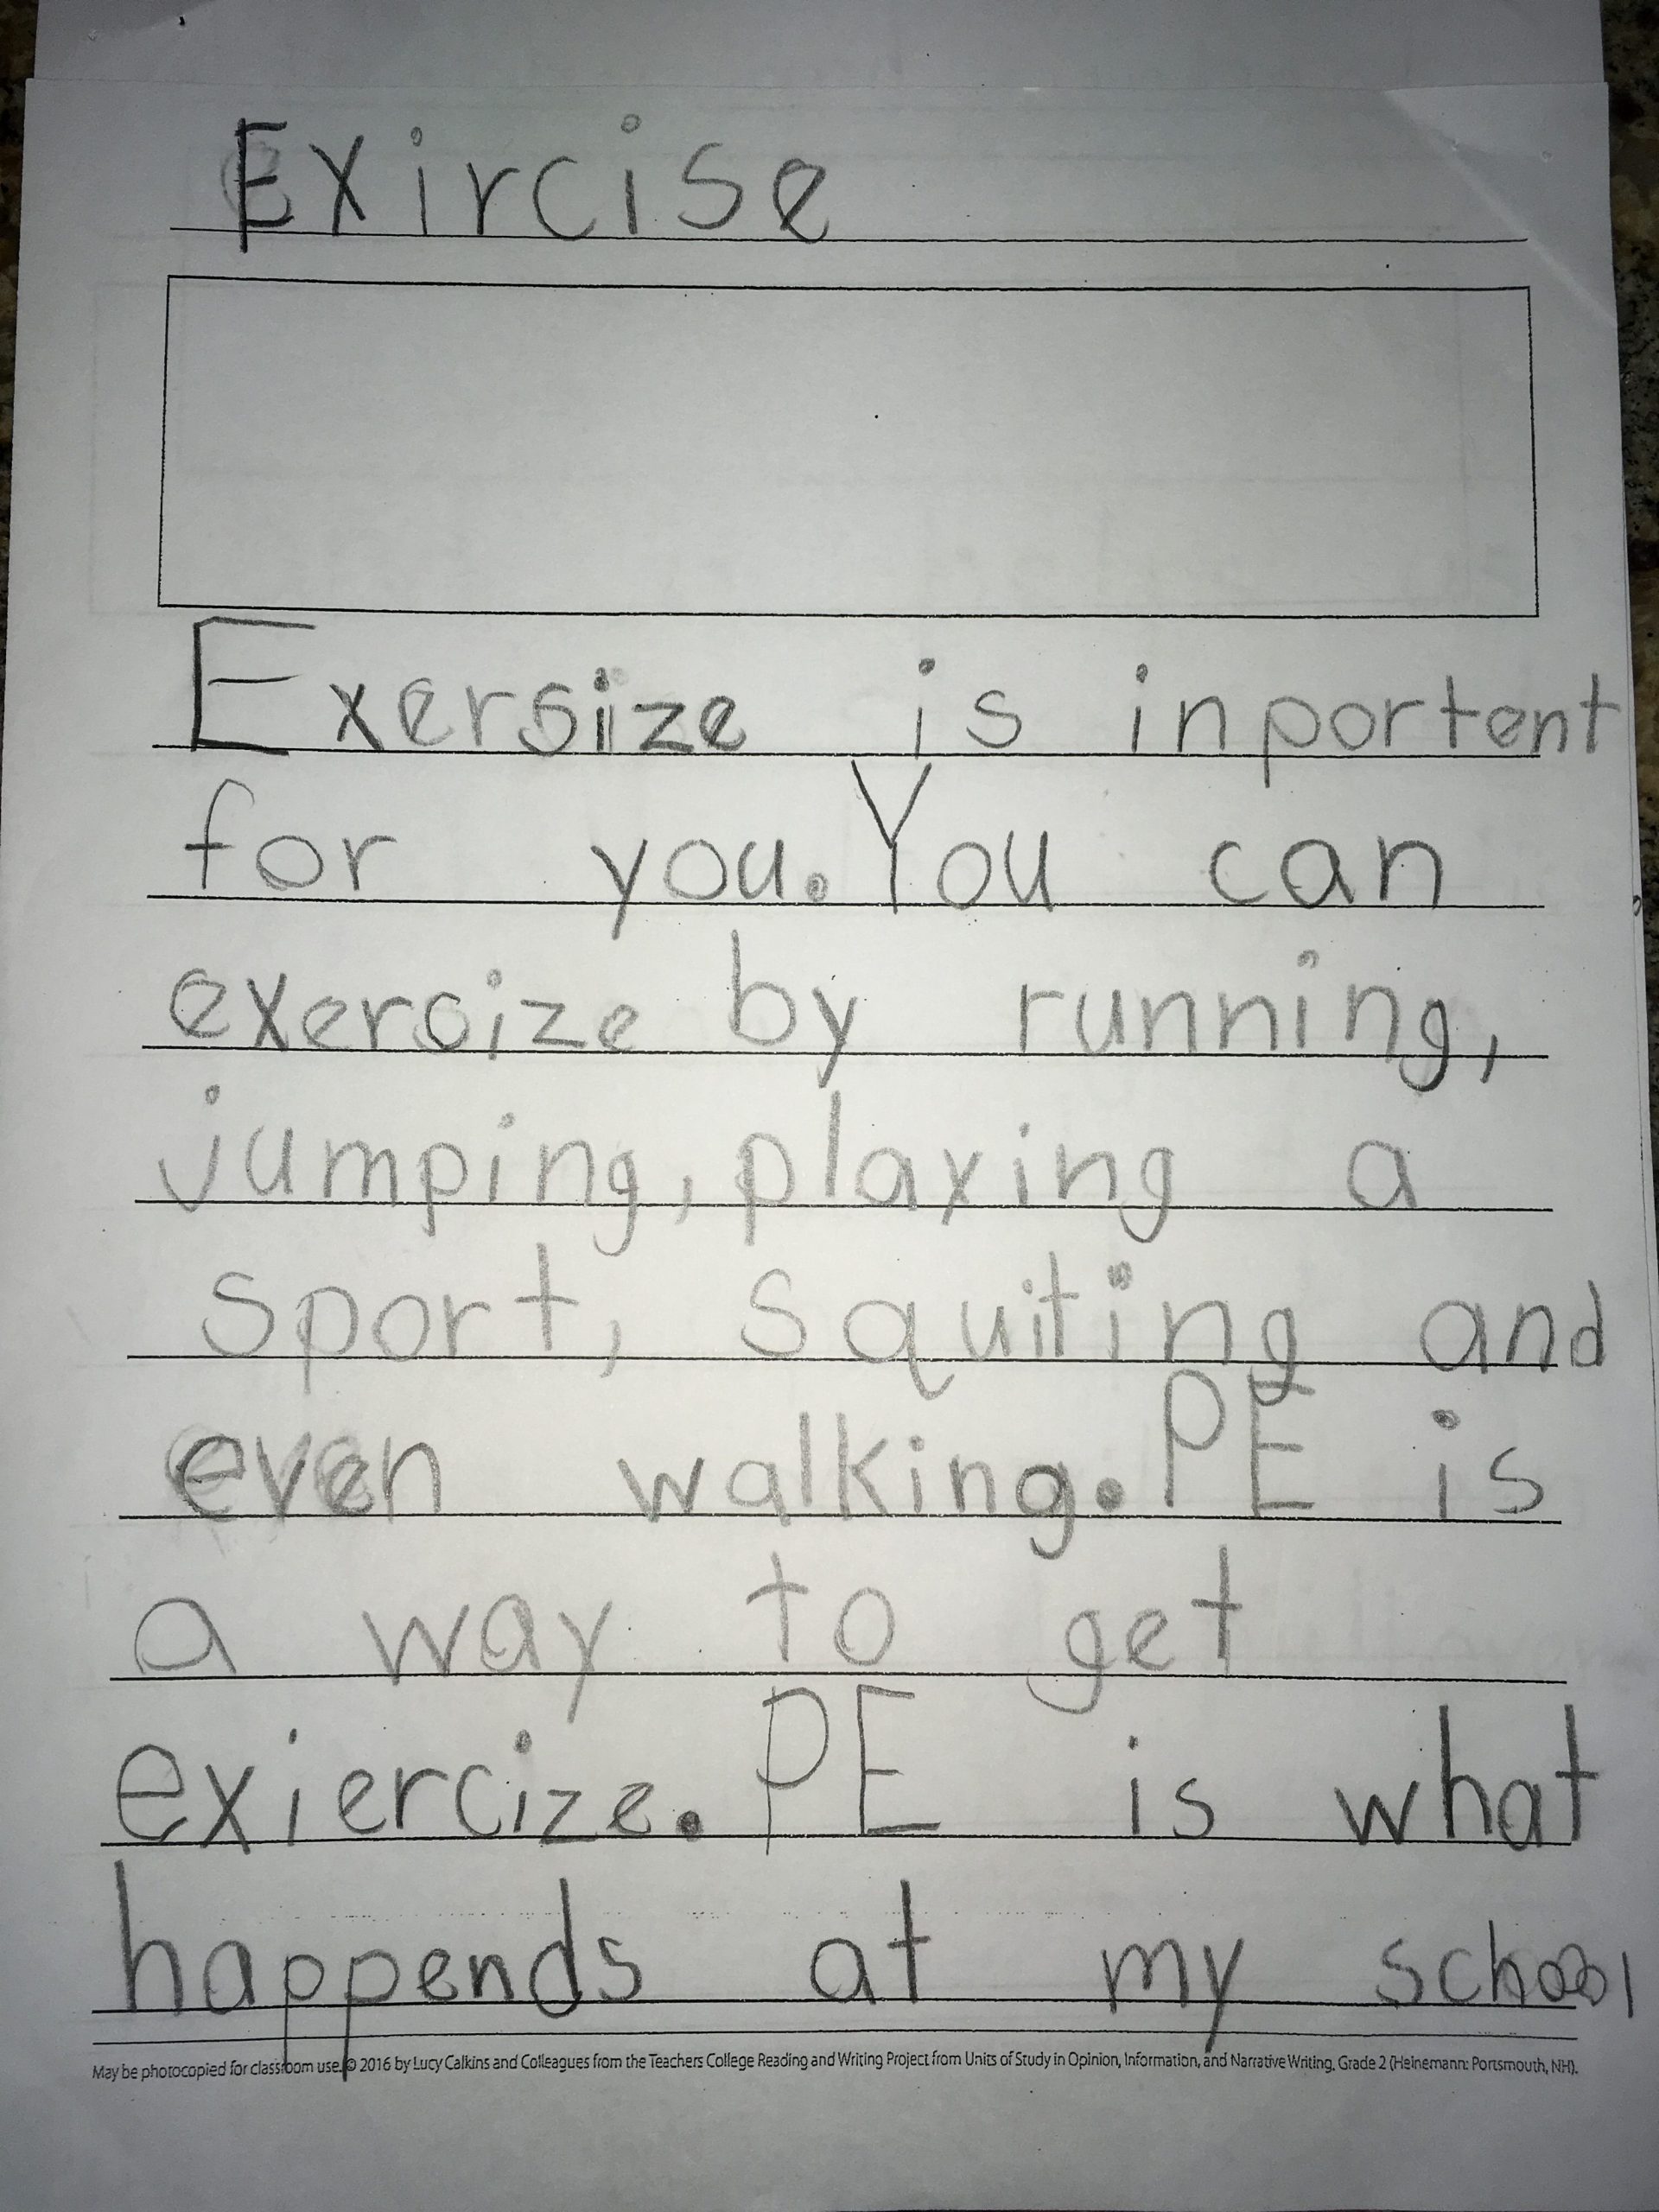 Exircise
Exersize is inportent
for you. You can
exersize by running,
jumping, playing a
sport, squiting and
even walking. PE is
a way to get
exiercize. PE is what
happends at my school
May be photocopied for classroom use. © 2016 by Lucy Calkins and Colleagues from the Teachers College Reading and Writing Project from Units of Study in Opinion, Information, and Narrative Writing, Grade 2 (Heinemann: Portsmouth, NH).